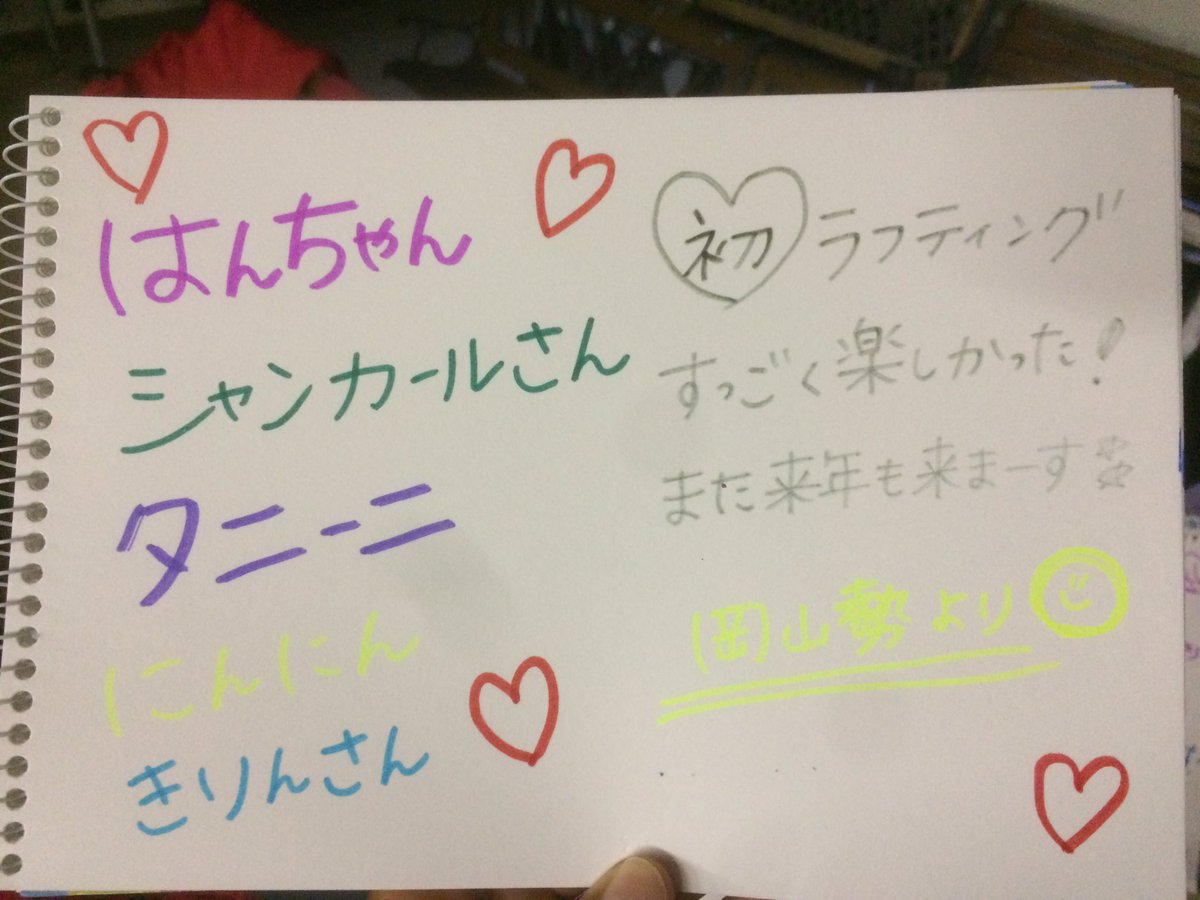 はんちゃん
シャンカールさん
タニーニ
にんにん
きりんさん
初ラフティング
すっごく楽しかった!
また来年も来まーす
岡山勢より